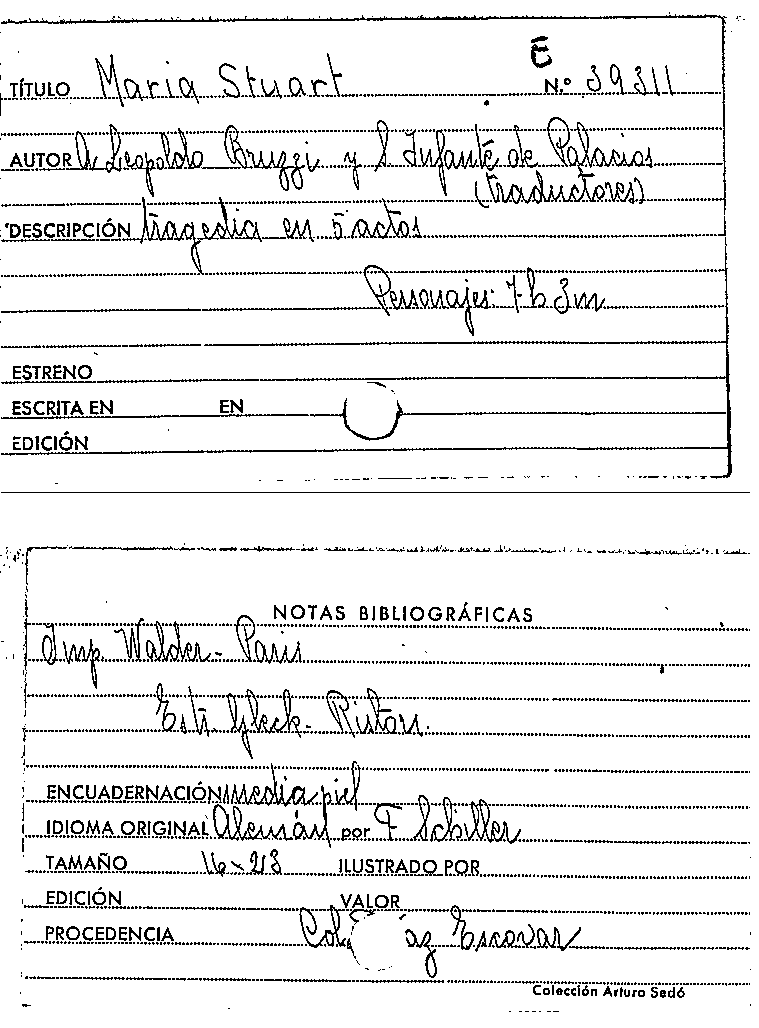 E
TÍTULO Maria Stuart N.º 39311
AUTOR A Leopoldo Bruzzi y S Infante de Palacios
(traductores)
DESCRIPCIÓN tragedia en 5 actos
Personajes: 7 h 3 m
ESTRENO
ESCRITA EN EN
EDICIÓN
NOTAS BIBLIOGRÁFICAS
Imp. Walder - Paris
Estr.
ENCUADERNACIÓN media piel
IDIOMA ORIGINAL Alemán por F Schiller
TAMAÑO 16 x 23 ILUSTRADO POR
EDICIÓN VALOR
PROCEDENCIA Col. az Escovar
Colección Arturo Sedó